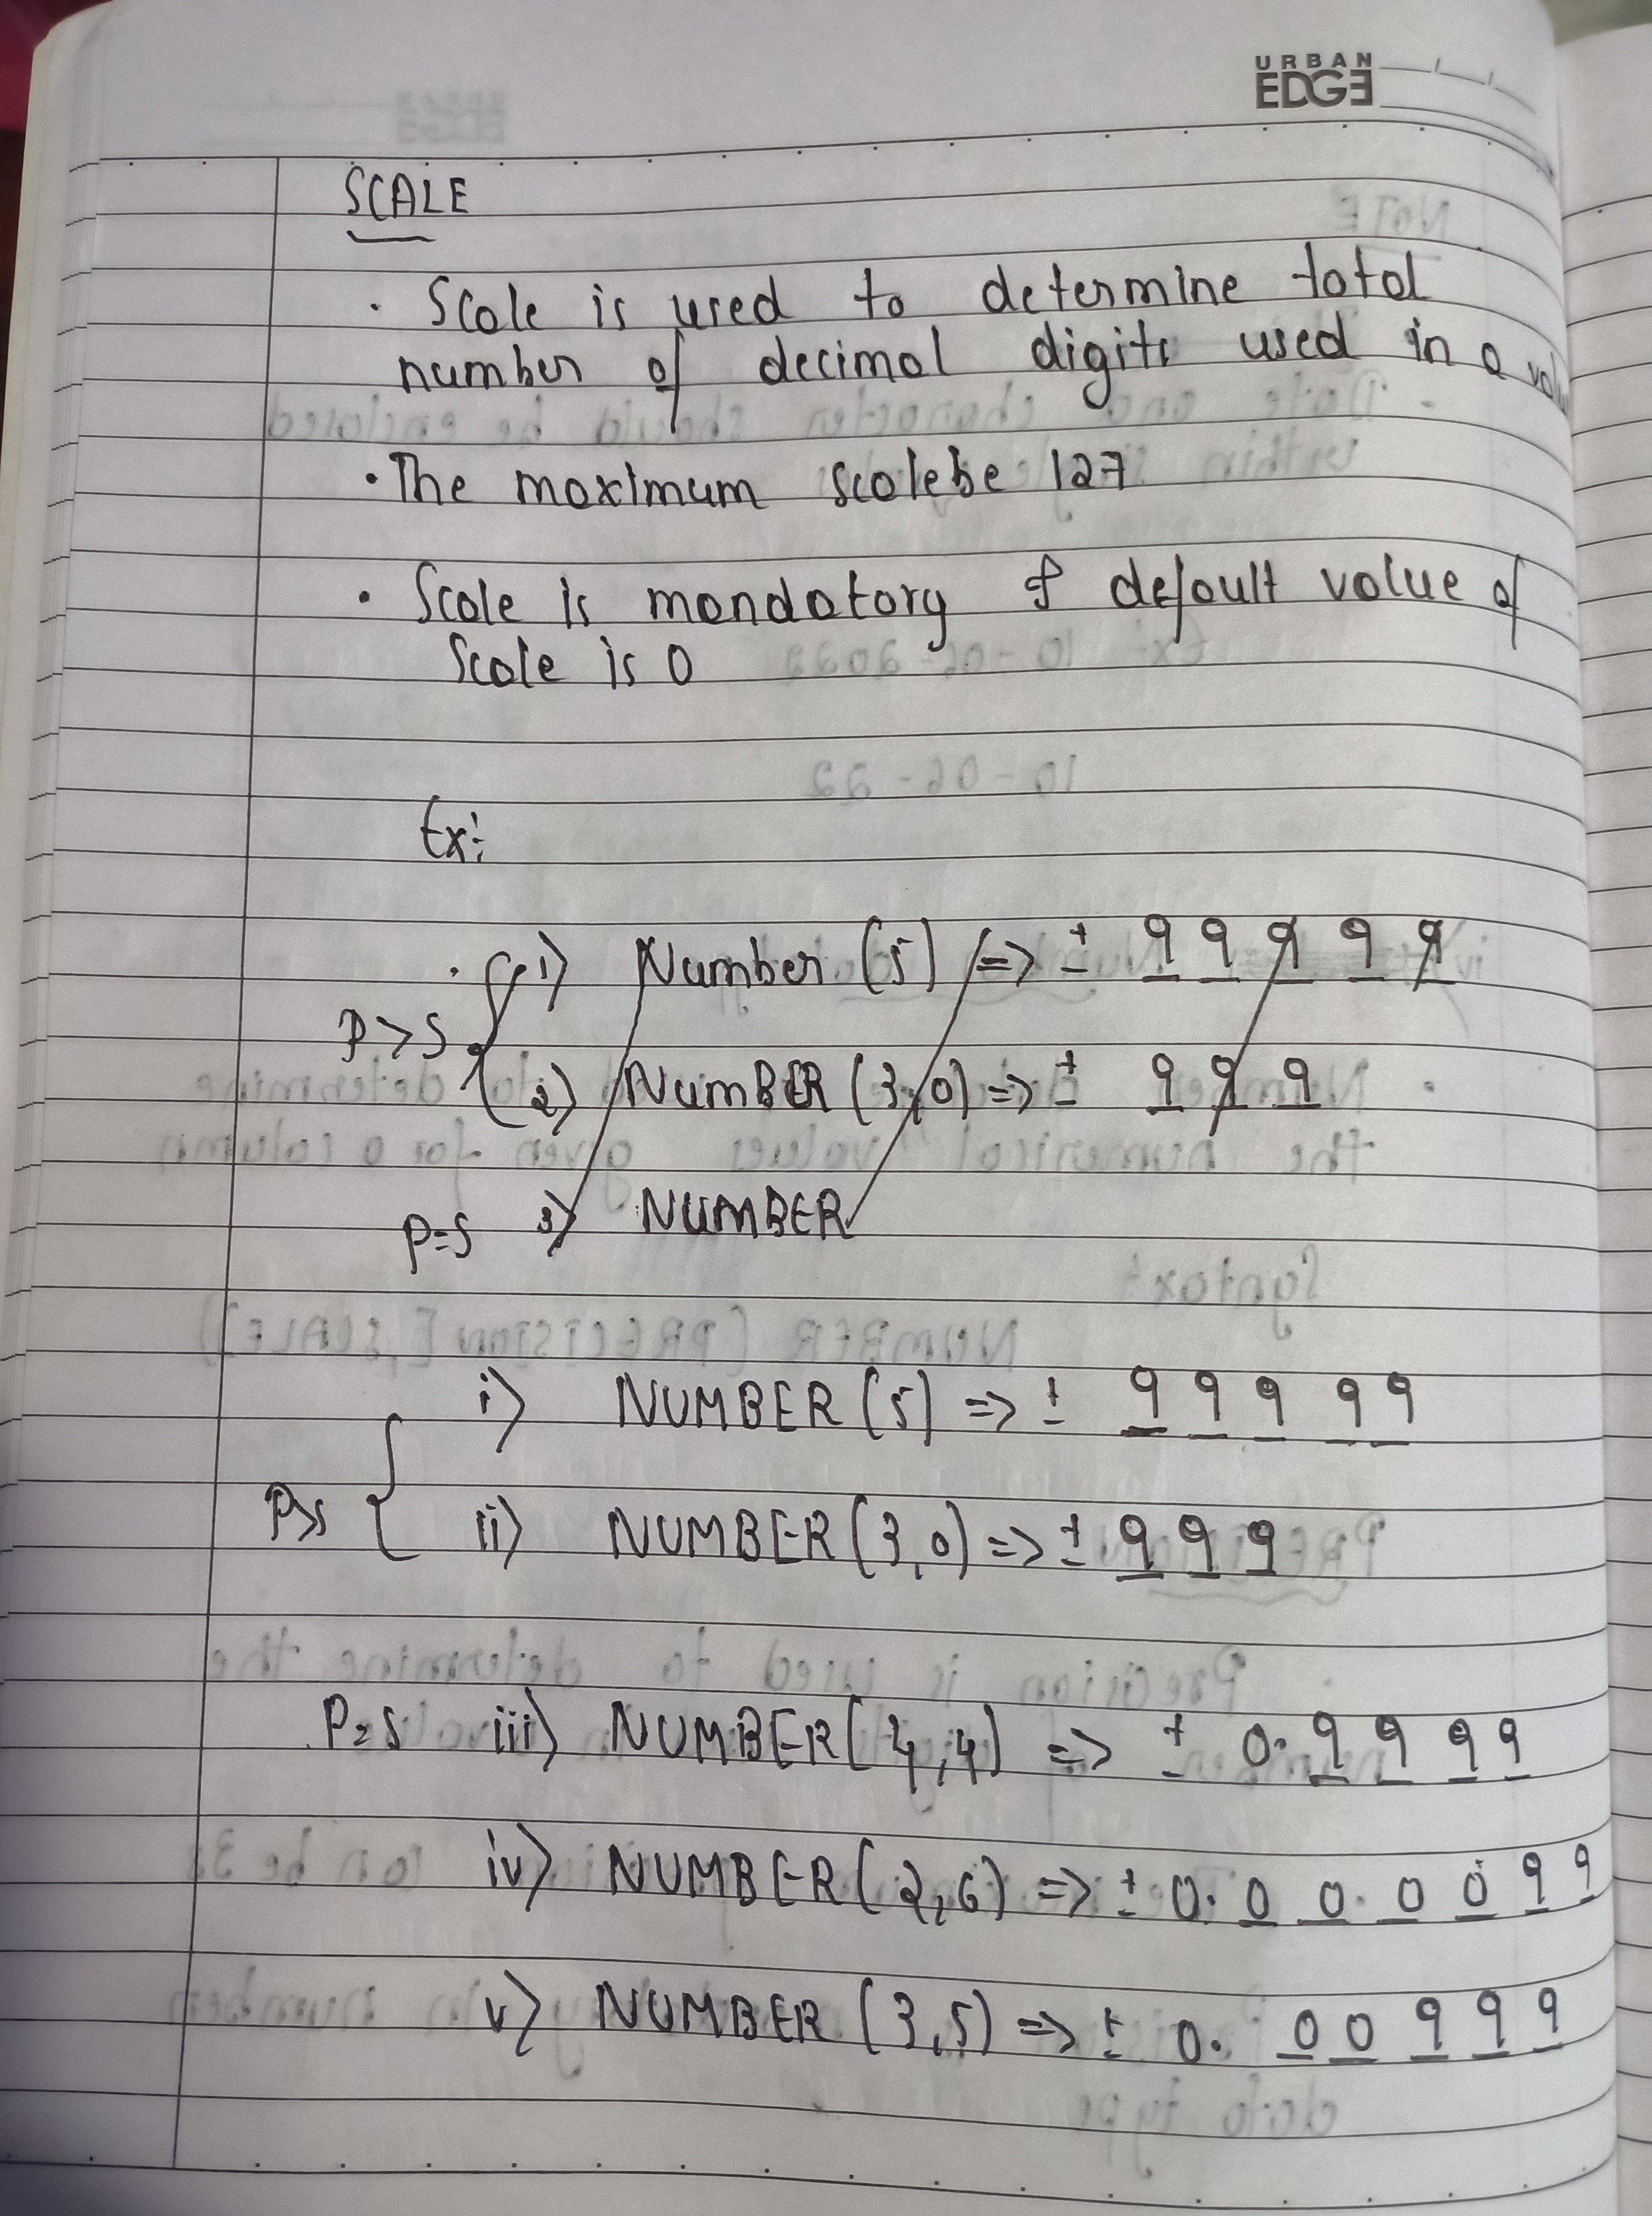 URBAN
EDGE
SCALE
• Scale is used to determine total
number of decimal digits used in a
• The maximum scalebe 127
• Scale is mandatory & default value of
Scale is 0
Ex:
1) Number (5) => ± 9 9 9 9 9
P>S
2) NumBER (3,0) => ± 9 9 9
P=S 3) NUMBER
i) NUMBER (5) => ± 9 9 9 9 9
P>s
ii) NUMBER (3,0) => ± 9 9 9
P=S iii) NUMBER (4,4) => ± 0. 9 9 9 9
iv) NUMBER (2,6) => ± 0. 0 0 0 0 9 9
v) NUMBER (3,5) => ± 0. 0 0 9 9 9